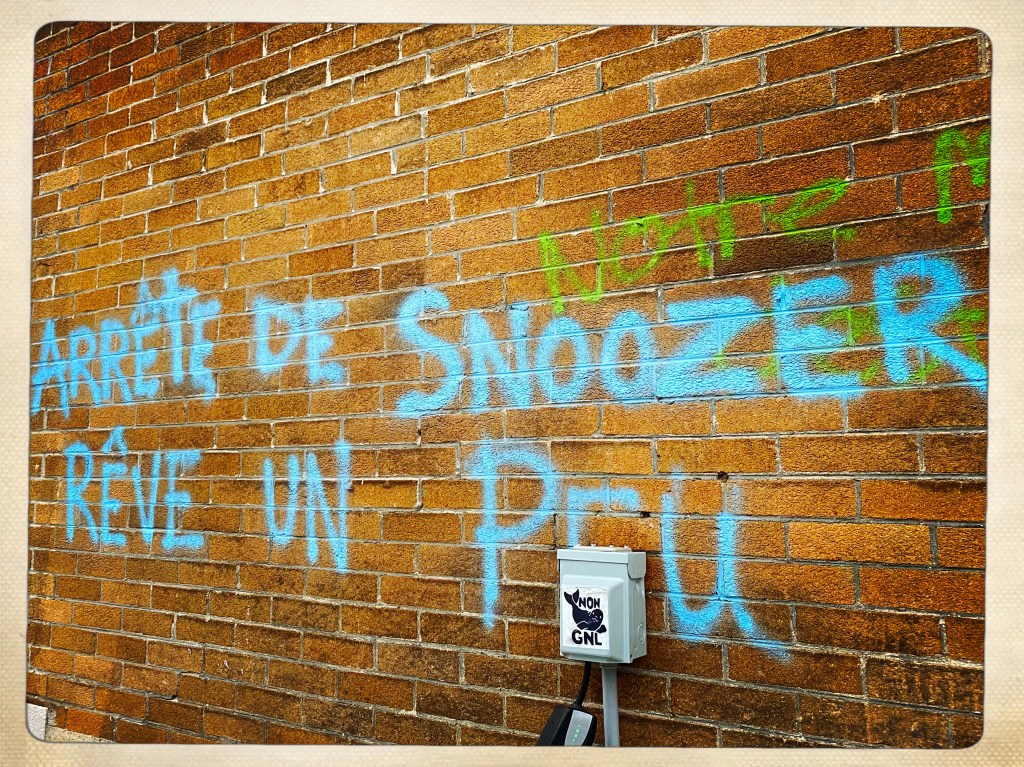 Notre
ARRÊTE DE SNOOZER
RÊVE UN PEU
NON
GNL